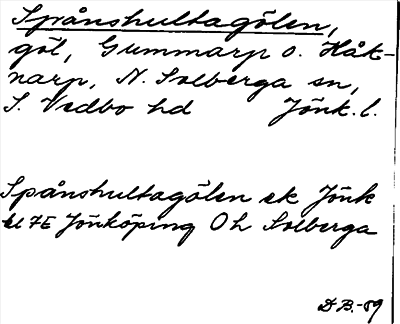 Spånshultagölen,
göl, Gummarp o. Håk-
narp, N. Solberga sn,
S. Vedbo hd Jönk. l.
Spånshultagölen ek Jönk
bl 7E Jönköping Oh Solberga
D B.-89